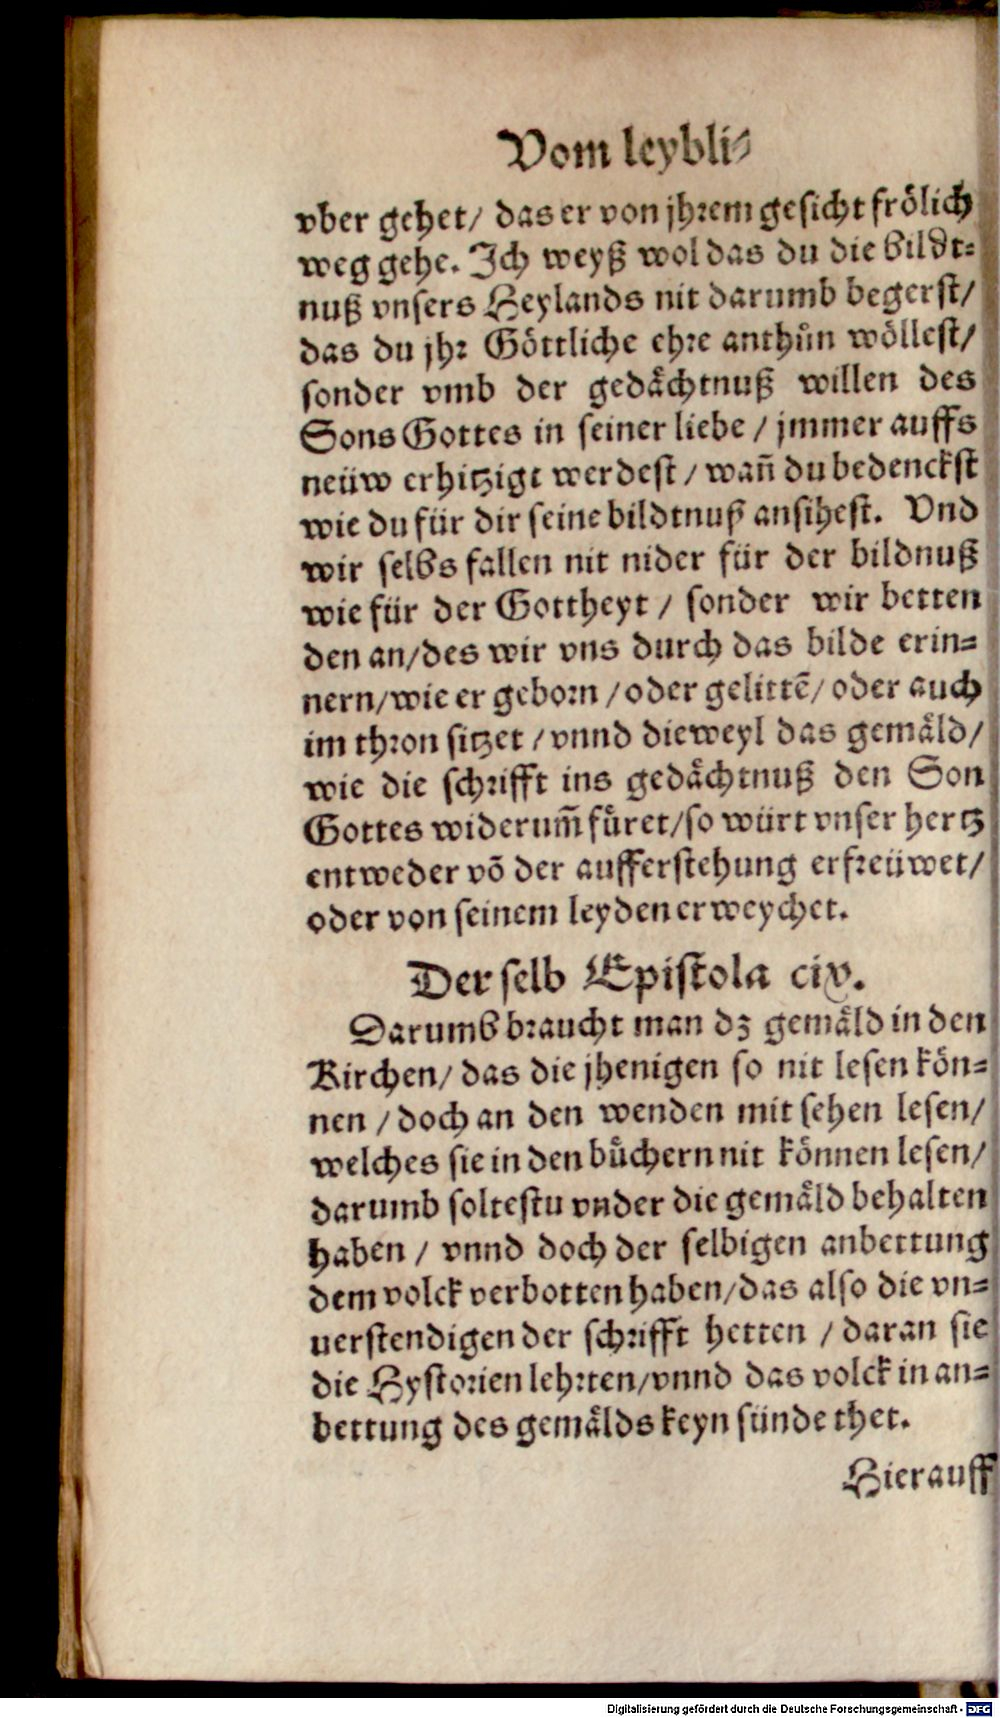 Vom leybli⸗
vber gehet/ das er von jhrem gesicht frölich
weg gehe. Jch weyß wol das du die bildt⸗
nuß vnsers Heylands nit darumb begerst/
das du jhr Göttliche ehre anthůn wöllest/
sonder vmb der gedächtnuß willen des
Sons Gottes in seiner liebe / jmmer auffs
neüw erhitzigt werdest / wañ du bedenckst
wie du für dir seine bildtnuß ansihest. Vnd
wir selbs fallen nit nider für der bildnuß
wie für der Gottheyt / sonder wir betten
den an/des wir vns durch das bilde erin⸗
nern/wie er geborn / oder gelittē/ oder auch
im thron sitzet / vnnd dieweyl das gemäld/
wie die schrifft ins gedächtnuß den Son
Gottes widerum̃ füret/so würt vnser hertz
entweder võ der aufferstehung erfreüwet/
oder von seinem leyden erweychet.
Der selb Epistola cix.
Darumb braucht man dz gemäld in den
Kirchen/ das die jhenigen so nit lesen kön⸗
nen / doch an den wenden mit sehen lesen/
welches sie in den büchern nit können lesen/
darumb soltestu vnder die gemäld behalten
haben / vnnd doch der selbigen anbettung
dem volck verbotten haben/das also die vn⸗
uerstendigen der schrifft hetten / daran sie
die Hystorien lehrten/vnnd das volck in an⸗
bettung des gemälds keyn sünde thet.
Hierauff
Digitalisierung gefördert durch die Deutsche Forschungsgemeinschaft - DFG